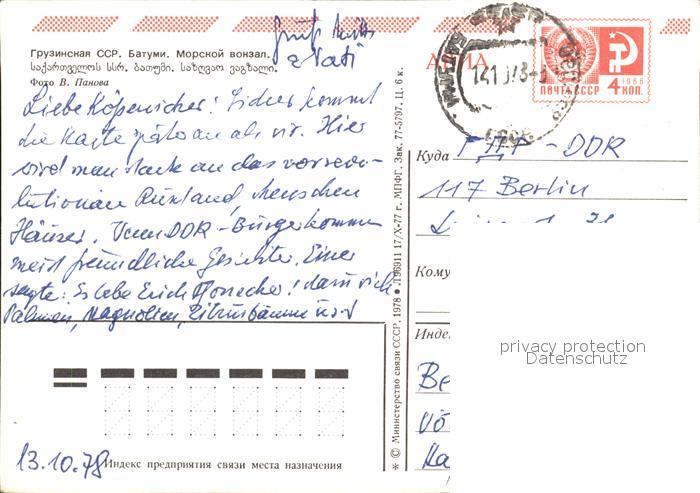 Грузинская ССР. Батуми. Морской вокзал.
საქართველოს სსრ. ბათუმი. საზღვაო ვაგზალი.
Фото В. Панова
Gruß
Vati
АВИА
ПОЧТА СССР
4 КОП.
1966
СССР
Liebe Köpenicker! Sicher kommt
die Karte später an als wir. Hier
wird man stark an das vorrevo-
lutionäre Russland, Menschen
Häuser. Wenn DDR-Bürger kommen
meist freundliche Gesichter. Einer
sagte: Es lebe Erich Honecker! dann sich
Palmen, Magnolien, Zitrusbäume usw
Куда ГДР-DDR
117 Berlin
Кому
Индекс
Be
Vö
Ha
privacy protection
Datenschutz
* © Министерство связи СССР, 1978 ● Л 96911 17/X-77 г. МПФГ. Зак. 77-5797. Ц. 6 к.
13.10.78
Индекс предприятия связи места назначения